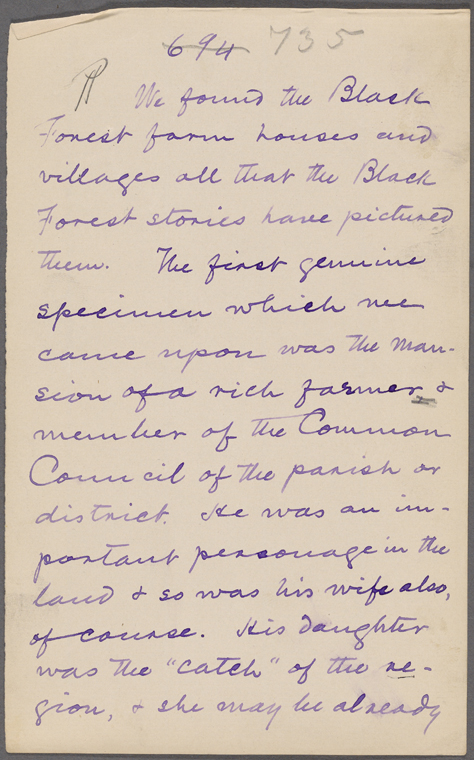 694 735
We found the Black
Forest farm houses and
villages all that the Black
Forest stories have pictured
them. The first genuine
specimen which we
came upon was the man-
sion of a rich farmer &
member of the Common
Council of the parish or
district. He was an im-
portant personage in the
land & so was his wife also,
of course. His daughter
was the "catch" of the re-
gion, & she may be already